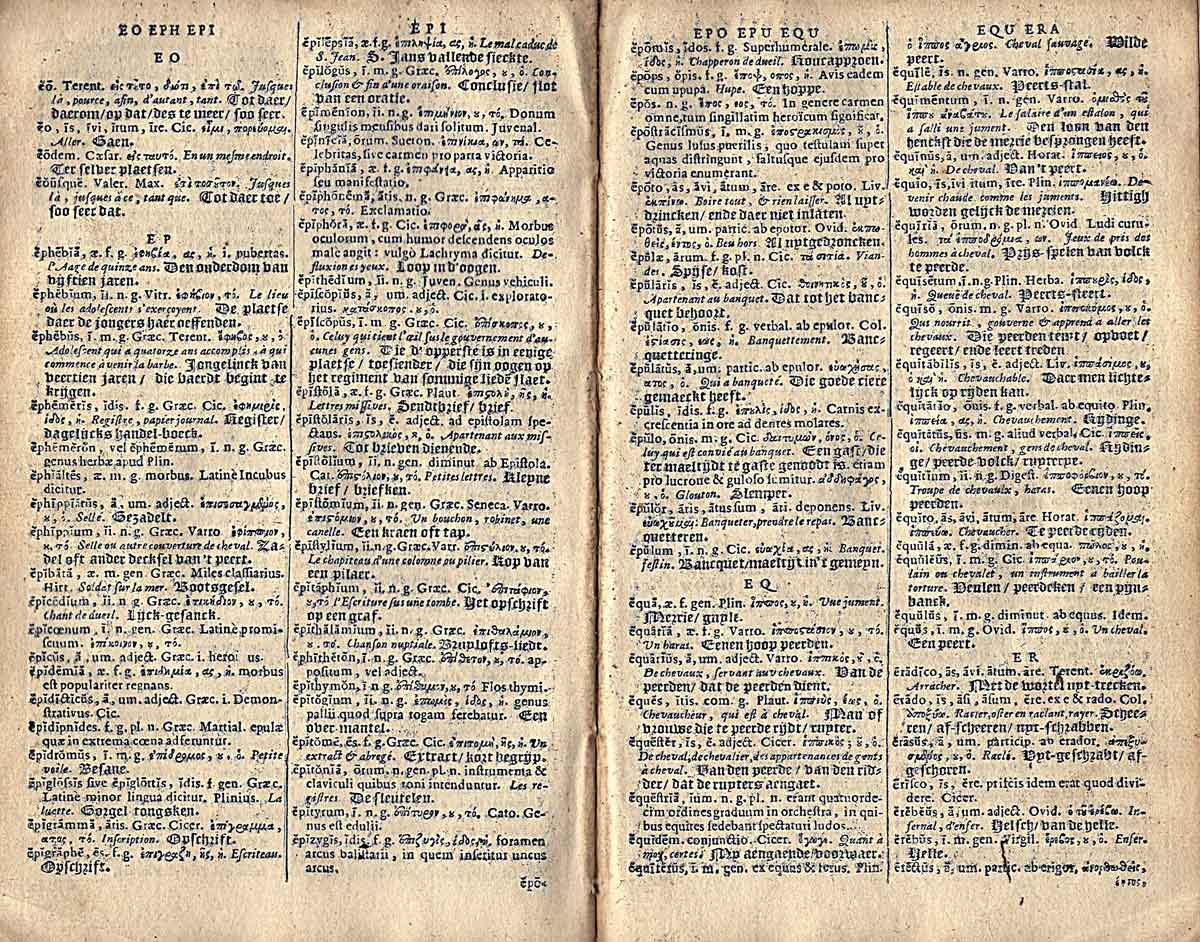 EO EPH EPI
E O
ĕō. Terent. εἰς τῦτο, διότι, ἐπὶ τῷ. Jusques
là, pource, afin, d'autant, tant. Tot daer/
daerom/op dat/des te meer/ soo seer.
ĕo, īs, īvi, ĭtum, īre. Cic. εἶμι, πορεύομαι.
Aller. Gaen.
ĕōdem. Cæsar. εἰς ταυτό. En un mesme endroit.
Ter selver plaetsen.
ĕōūsquĕ. Valer. Max. Jusques
là, jusques à ce, tant que. Tot daer toe/
soo seer dat.
E P
ĕphēbīa, æ. f. g. ἐφηβεία, ας, ἡ. i. pubertas.
l'Aage de quinze ans. Den onderdom van
vijftien jaren.
ĕphēbīum, ĭi. n. g. Vitr. ἐφήβιον, τό. Le lieu
où les adolescents s'exerçoyent. De plaetse
daer de jongers haer oeffenden.
ĕphēbŭs, i. m. g. Græc. Terent. ἔφηβος, ȣ, ὁ
Adolescent qui a quatorze ans accomplis, à qui
commence à venir la barbe. Jongelinck van
veertien jaren/ die baerdt begint te
krijgen.
ĕphēmĕrĭs, ĭdis. f. g. Græc. Cic. ἐφημερίς,
ίδος, ἡ. Registre, papier journal. Register/
dagelijcks handel-boeck.
ĕphēmĕrŏn, vel ĕphēmĕrum, ĭ. n. g. Græc.
genus herbæ apud Plin.
ĕphĭāltēs, æ. m. g. morbus. Latinè Incubus
dicitur.
ĕphĭppĭātus, ă, um. adject.
ȣ, ὁ. Sellé. Gezadelt.
ĕphĭppĭum, ĭi. n. g. Græc. Varro ἐφίππιον,
ȣ, τό. Selle ou autre couverture de cheval. Za-
del oft ander decksel van't peert.
ĕpĭbătă, æ. m. gen. Græc. Miles classiarius.
Hirt. Soldat sur la mer. Bootsgesel.
ĕpĭcēdĭum, ĭi. n. g. Græc. ἐπικήδιον, ȣ, τό.
Chant de dueil. Lijck-gesanck.
ĕpĭcœnum, ĭ. n. gen. Græc. Latinè promi-
scuum. ἐπίκοινον, ȣ, τό.
ĕpĭcŭs, ă, um. adject. Græc. i. heroi us.
ĕpĭdēmĭă, æ. f. g. ἐπιδημία, ας, ἡ morbus
est populariter regnans.
ĕpĭdīctĭcŭs, ă, um. adject. Gr. i. Demon-
strativus. Cic.
ĕpĭdīpnides. f. g. pl. n. Græc. Martial. epulæ
quæ in extrema cœna adferuntur.
ĕpĭdrŏmŭs, ĭ. m. g. ἐπίδρομος, ȣ, ὁ. Petite
voile. Besane.
ĕpĭglōssĭs sive ĕpĭglōttis, ĭdis. f. gen. Græc.
Latinè minor lingua dicitur. Plinius. La
luette. Gorgel tongsken.
ĕpĭgrāmmă, ătis. Græc. Cicer. ἐπίγραμμα,
ατος, τό. Inscription. Opschrift.
ĕpĭgrăphē, ēs. f. g. ἐπιγραφὴ, ῆς, ἡ. Escriteau.
Opschrift.
E P I
ĕpĭlēpsĭă, æ. f. g. ἐπιληψία, ας, ἡ. Le mal caduc de
S. Jean. S. Jans vallende sieckte.
ĕpĭlŏgŭs, ĭ. m. g. Græc. ἐπίλογος, ȣ, ὁ. Con-
clusion & fin d'une oraison. Conclusie/ slot
van een oratie.
ĕpĭmēnĭon, ĭi. n. g. ἐπιμήνιον, ȣ, τό. Donum
singulis mensibus dari solitum. Juvenal.
ĕpĭnīcĭă, ōrum. Sueton. ἐπινίκια, ων, τά. Ce-
lebritas, sive carmen pro parta victoria.
ĕpĭphānĭă, æ. f. g. ἐπιφάνεια, ας, ἡ. Apparitio
seu manifestatio.
ĕpĭphŏnēmă, ătis. n. g. Græc. ἐπιφώνημα, α-
τος, τό. Exclamatio.
ĕpĭphŏră, æ. f. g. Cic. ἐπιφορὰ, ᾶς, ἡ. Morbus
oculorum, cum humor descendens oculos
malè angit: vulgò Lachryma dicitur. De-
fluxion es yeux. Loop in d'oogen.
ĕpĭthēdĭum, ĭi. n. g. Juven. Genus vehiculi.
ĕpĭscŏpĭŭs, ă, um. adject. Cic. i. explorato-
rius. κατάσκοπος, ȣ, ὁ.
ĕpĭscŏpŭs, ĭ. m. g. Græc. Cic. ἐπίσκοπος, ȣ,
ὁ. Celuy qui tient l'œil sus le gouvernement d'au-
cunes gens. Die d' opperste is in eenige
plaetse/ toesiender/ die sijn oogen op
het regiment van sommige liede slaet.
ĕpĭstŏlă, æ. f. g. Græc. Plaut. ἐπιστολὴ, ῆς, ἡ.
Lettres missives. Sendtbrief/ brief.
ĕpĭstŏlārĭs, ĭs, ĕ. adject. ad epistolam spe-
ctans. ἐπιστολικὸς, ȣ, ὁ. Apartenant aux mis-
sives. Tot brieven dienende.
ĕpĭstŏlĭum, ĭi. n. gen. diminut. ab Epistola.
Cat. ἐπιστόλιον, ȣ, τό. Petites lettres. Kleyne
brief / briefken.
ĕpĭstŏmĭum, ĭi. n. gen. Græc. Seneca. Varro.
ἐπιστόμιον, ȣ, τό. Un bouchon, robinet, une
canelle. Een kraen oft tap.
ĕpĭstȳlĭum, ĭi. n. g. Græc. Varr. ἐπιστύλιον, ȣ, τό.
Le chapiteau d'une colomne ou pilier. Kop van
een pilaer.
ĕpĭtăphĭum, ĭi. n. gen. Græc. Cic. ἐπιτάφιον,
ȣ, τό l'Escriture sus une tombe. Het opschrift
op een graf.
ĕpĭthălămĭum, ĭi. n. g. Græc. ἐπιθαλάμιον,
ȣ, τό. Chanson nuptiale. Bruylofts-liedt.
ĕpĭthĕton, ĭ. n. g. Græc. ἐπίθετον, ȣ, τό. ap-
positum, vel adject.
ĕpĭthȳmon, ĭ. n. g. ἐπίθυμον, ȣ, τό Flos thymi.
ĕpĭtŏgĭum, ĭi. n. g. ἐπωμὶς, ίδος, ἡ. genus
pallii quod supra togam ferebatur. Een
over-mantel.
ĕpĭtŏmē, ēs. f. g. Græc. Cic. ἐπιτομὴ, ῆς, ἡ. Un
extraict & abregé. Extract/ kort begrijp.
ĕpĭtŏnĭă, ōrum. n. gen. pl. n. instrumenta &
claviculi quibus toni intenduntur. Les re-
gistres. De sleutelen.
ĕpĭtyrum, ĭ. n. g. ἐπίτυρον, ȣ, τό. Cato. Ge-
nus est edulii.
ĕpĭzȳgis, ĭdis, f. g. foramen
arcus balistarii, in quem inseritur uncus
arcus.
ĕpŏ-
EPO EPU EQU
ĕpōmĭs, ĭdos. f. g. Superhumerale. ἐπωμὶς,
ίδος, ἡ. Chapperon de dueil. Roucapproen.
ĕpŏps, ŏpis. f. g. ἔποψ, οπος, ἡ. Avis eadem
cum upupa. Hupe. Een hoppe.
ĕpŏs. n. g. ἔπος, εος, τό. In genere carmen
omne, tum singillatim heroicum significat.
ĕpŏstrăcīsmŭs, ĭ. m. g. ἐποστρακισμὸς, ȣ, ὁ.
Genus lusus puerilis; quo testulani super
aquas distringunt, saltusque ejusdem pro
victoria enumerant.
ĕpōto, ās, āvi, ātum, āre. ex e & poto. Liv.
ἐκπίνω. Boire tout, & rien laisser. Al uyt-
drincken/ ende daer niet inlaten.
ĕpōtŭs, ă, um. partic. ab epotor. Ovid.
Beu hors. Al uytgedroncken.
ĕpŭlæ, ārum. f. g. pl. n. Cic. Vian-
des. Spijse/ kost.
ĕpŭlārĭs, ĭs, ĕ. adject. Cic. ȣ, ὁ.
Apartenant au banquet. Dat tot het banc-
quet behoort.
ĕpŭlātĭo, ōnis. f. g. verbal. ab epulor. Col.
ἑστίασις, εως, ἡ. Banquettement. Banc-
quetteringe.
ĕpŭlātŭs, ă, um. partic. ab epulor.
ὁ. Qui a banqueté. Die goede ciere
gemaeckt heeft.
ĕpŭlis, ĭdis. f. g. ἐπουλὶς, ίδος, ἡ. Carnis ex-
crescentia in ore ad dentes molares.
ĕpŭlo, ōnis. m. g. Cic. δαιτυμὼν, όνος, ὁ. Ce-
luy qui est convié au banquet. Een gast/ die
ter maeltijdt te gaste genoodt is. etiam
pro lucrone & guloso sumitur. ἀδδηφάγος,
ȣ, ὁ. Glouton. Slemper.
ĕpŭlŏr, āris, ātus sum, āri. deponens. Liv.
εὐωχέομαι. Banqueter, prendre le repas. Banc-
quetteren.
ĕpŭlum, ĭ. n. g. Cic. εὐωχία, ας, ἡ. Banquet.
festin. Bancquet/maeltijt in't gemeyn.
E Q
ĕquă, æ. f. gen. Plin. ἵππος, ȣ, ἡ. Une jument.
Merrie/ guyle.
ĕquārĭă, æ. f. g. Varro. ἱπποστάσιον, ȣ, τό.
Un haras. Eenen hoop peerden.
ĕquārĭŭs, ă, um. adject. Varro. ἱππικὸς, ȣ, ὁ.
De chevaux, servant aux chevaux. Van de
peerden/ dat de peerden dient.
ĕquĕs, ĭtis. com. g. Plaut. ἱππεὺς, έως, ὁ.
Chevaucheur, qui est à cheval. Man of
vrouwe die te peerde rijdt/ ruyter.
ĕquēstĕr, ĭs, ĕ. adject. Cicer. ἱππικὸς; ȣ, ὁ.
De cheval, de chevalier, des appartenances de gents
à cheval. Van den peerde / van den rid-
der/ dat de ruyters aengaet.
ĕquēstrĭă, ĭum. n. g. pl. n. erant quatuorde-
cim ordines graduum in orchestra, in qui-
bus equites sedebant spectaturi ludos.
ĕquĭdēm. conjunctio. Cicer. ἔγωγε. Quant à
moy, certes. My aengaende/voorwaer.
ĕquĭfĕrŭs, ĭ. m. gen. ex equus & ferus. Plin.
EQU ERA
ὁ ἵππος ἄγριος. Cheval sauvage. Wilde
peert.
ĕquīlĕ, ĭs. n. gen. Varro. ἱπποστασία, ας, ἡ.
Estable de chevaux. Peerts-stal.
ĕquīmēntum, ĭ. n. gen. Varro.
Le salaire d'un estalon, qui
a salli une jument. Den loon van den
henckst die de merrie besprongen heeft.
ĕquīnŭs, ă, um. adject. Horat. ἵππειος, ȣ, ὁ
καὶ ἡ. De cheval. Van 't peert.
ĕquĭo, īs, īvi, ītum, īre. Plin. ἱππομανέω. De-
venir chaude comme les juments. Hittigh
worden gelijck de merrien.
ĕquīrĭă, ōrum. n. g. pl. n. Ovid. Ludi curu-
les. τὰ ἱπποδρόμια, ων. Jeux de pris des
hommes à cheval. Prijs-spelen van volck
te peerde.
ĕquīsētum, ĭ. n. g. Plin. Herba. ἵππουρις, ιδος,
ἡ. Queuë de cheval. Peerts-steert.
ĕquīsŏ, ōnis. m. g. Varro. ἱπποκόμος, ȣ, ὁ.
Qui nourrit, gouverne & aprend à aller les
chevaux. Die peerden tem-t/ opvoet/
regeert/ ende leert treden.
ĕquĭtābĭlĭs, ĭs, ĕ. adject. Liv. ἱππάσιμος, ȣ,
ὁ καὶ ἡ. Chevauchable. Daer men lichte-
lijck op rijden kan.
ĕquĭtātĭo, ōnis. f. g. verbal. ab equito. Plin.
ἱππεία, ας, ἡ. Chevauchement. Rijdinge.
ĕquĭtātŭs, ūs. m. g. aliud verbal. Cic.
Chevauchement, gens de cheval. Rijdin-
ge/ peerde volck/ ruyterye.
ĕquĭtĭum, ĭi. n. g. Digest. ἱπποφόρβιον, ȣ, τό.
Troupe de chevaulx, haras. Eenen hoop
peerden.
ĕquĭto, ās, āvi, ātum, āre Horat. ἱππάζομαι.
ἱππεύω. Chevaucher. Te peerde rijden.
ĕquŭlă, æ. f. g. dimin. ab equa. πῶλος, ȣ, ἡ.
ĕquŭlĕŭs, ĭ. m. g. Cic. ἱππάριον, ȣ, τό. Pou-
lain ou chevalet, un instrument à bailler la
torture. Veulen/ peerdeken/ een pijn-
banck.
ĕquŭlŭs, ĭ. m. g. diminut. ab equus. Idem.
ĕquŭs, ĭ. m. g. Ovid. ἵππος, ȣ, ὁ. Un cheval.
Een peert.
E R
ērādīco, ās, āvi, ātum, āre. Terent.
Arracher. Met de wortel uyt-trecken.
ērādo, ĭs, āsi, āsum, ĕre. ex e & rado. Col.
ἀποξύω. Racler, oster en raclant, rayer. Schee-
ren/ af-scheeren/ uyt-schrabben.
ērāsŭs, ă, um. particip. ab erador.
ȣ, ὁ. Raclé. Uyt-geschrabt/ af-
geschoren.
ērīsco, ĭs, ĕre. priscis idem erat quod divi-
dere. Cicer.
ĕrĕbēŭs, ă, um. adject. Ovid. In-
fernal, d'enfer. Helsch/ van de helle.
ĕrĕbŭs, ĭ. m. gen. Virgil. ἔρεβος, ȣ, ὁ. Enfer.
Helle.
ērēctŭs, ă, um. partic. ab erigor, ἀνορθωθεὶς,
έντος,